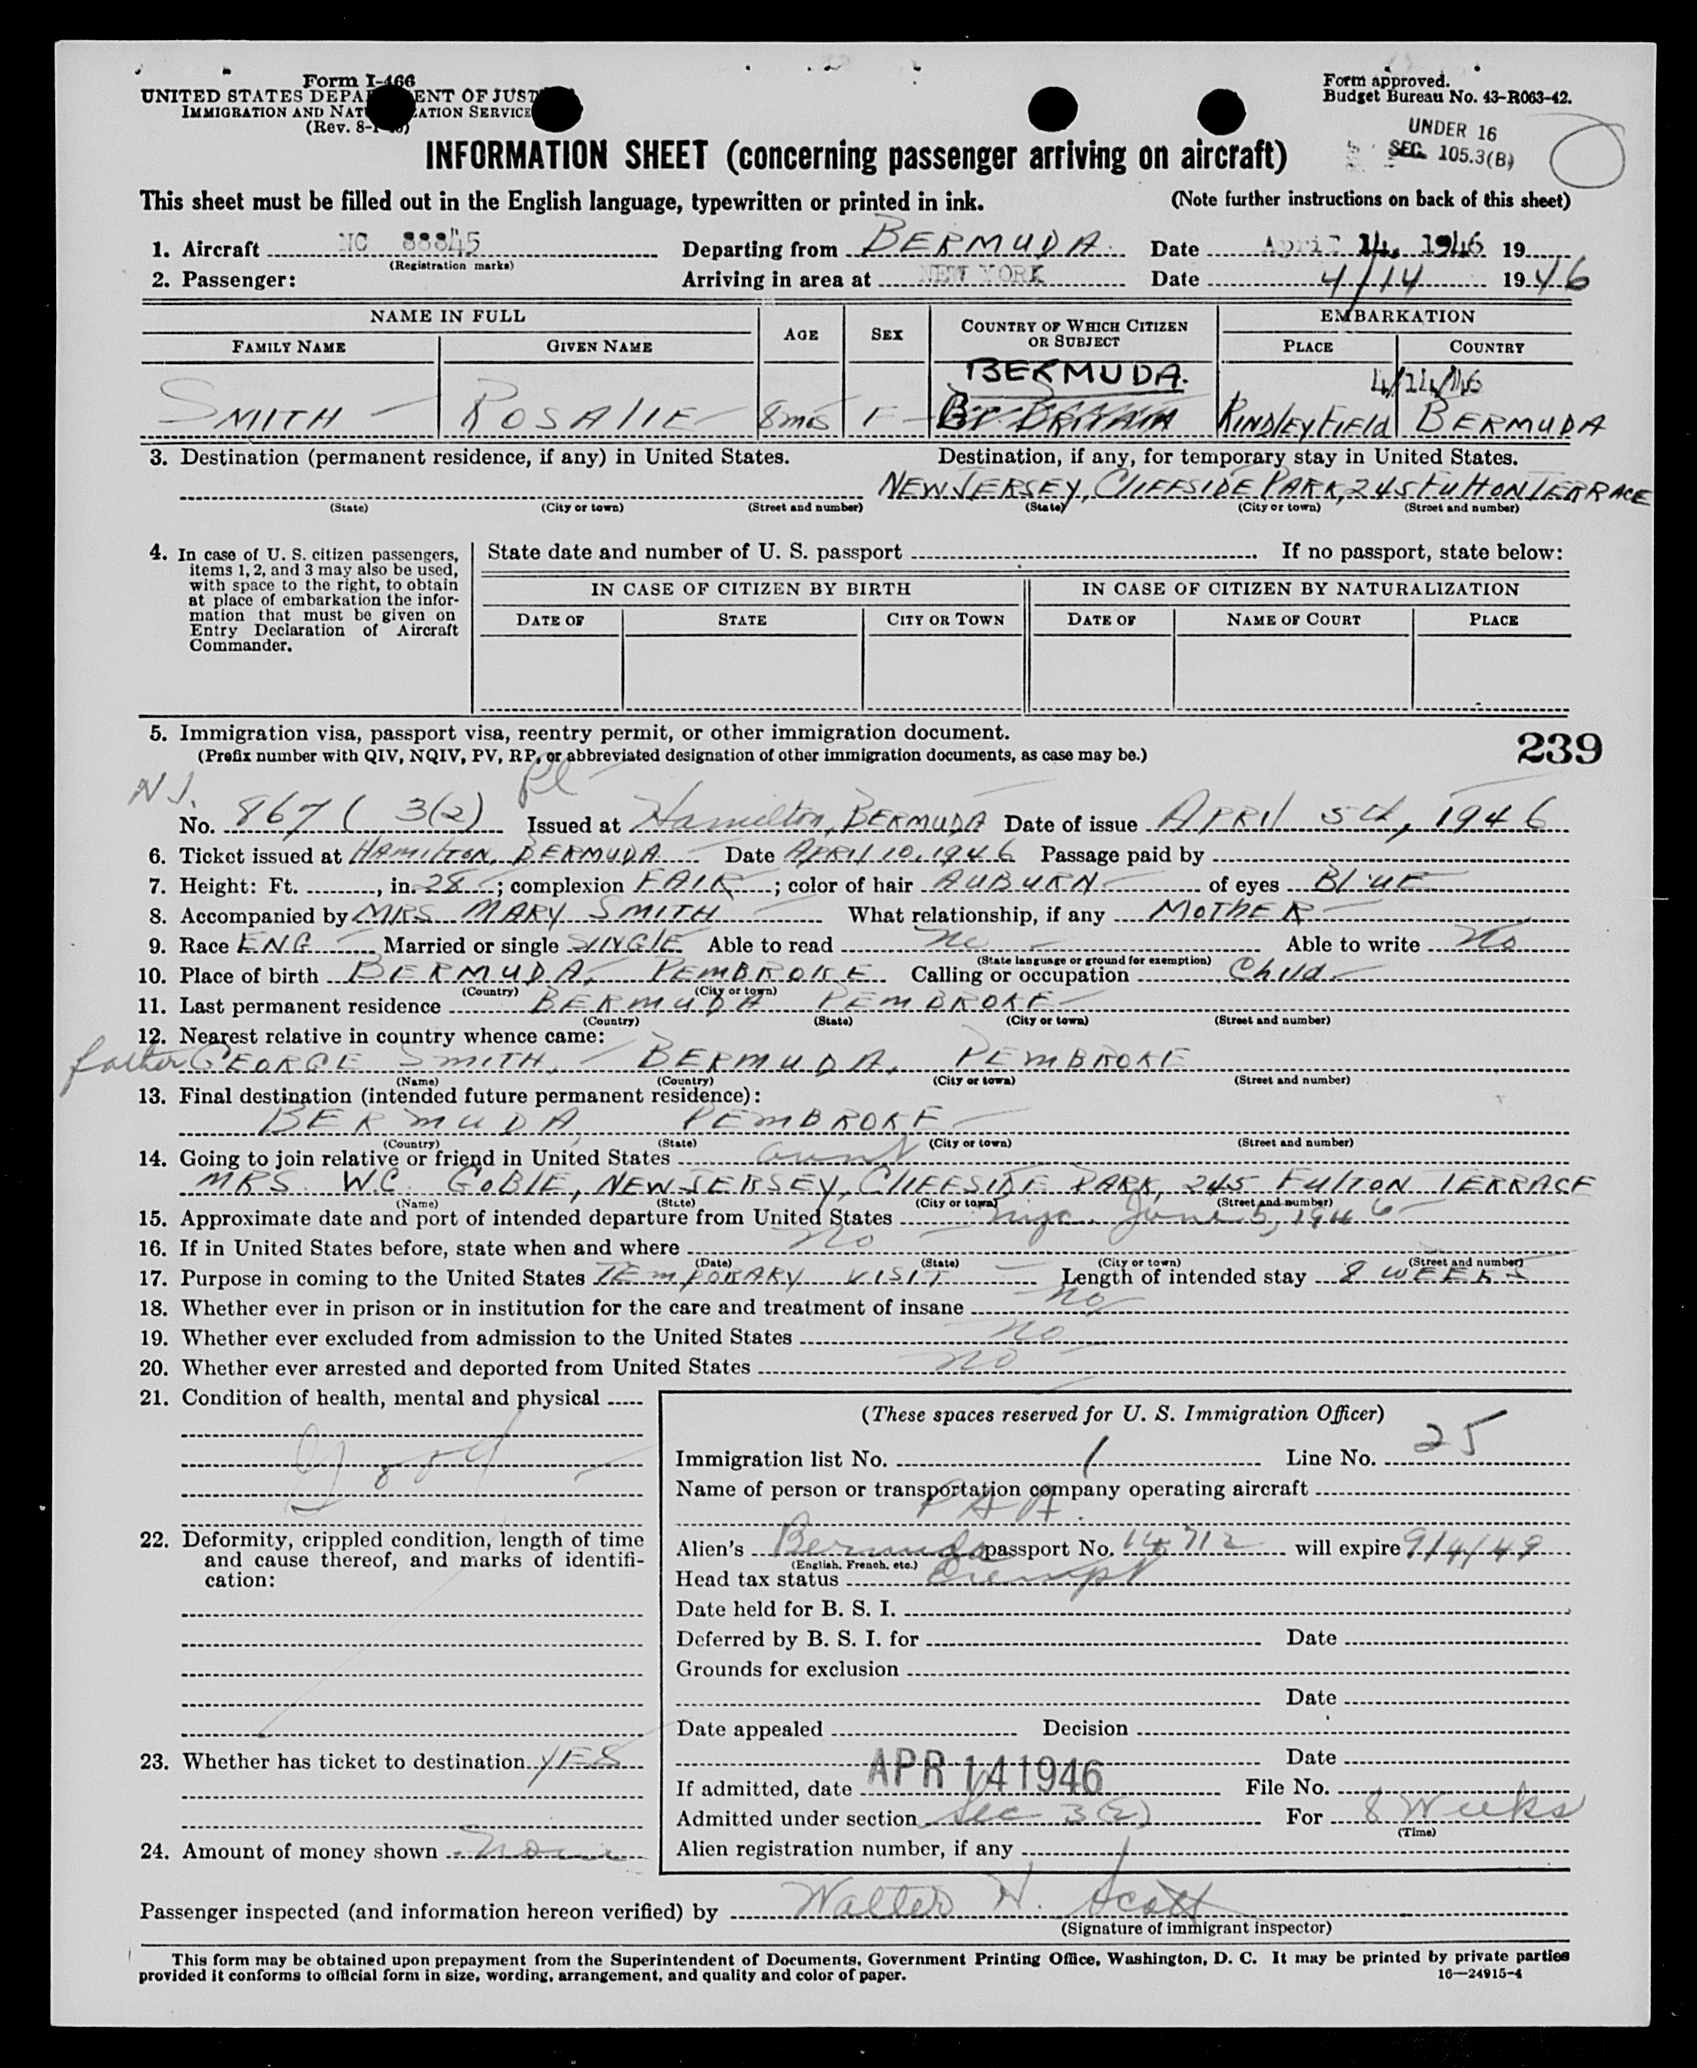 Form I-466
UNITED STATES DEPA ENT OF JUST
IMMIGRATION AND NAT ATION SERVICE
(Rev. 8-1- )
Form approved.
Budget Bureau No. 43-R063-42.
UNDER 16
SEC. 105.3(B)
INFORMATION SHEET (concerning passenger arriving on aircraft)
This sheet must be filled out in the English language, typewritten or printed in ink. (Note further instructions on back of this sheet)
1. Aircraft NC 88845 Departing from BERMUDA. Date April 14, 1946 19
(Registration marks)
2. Passenger: Arriving in area at NEW YORK Date 4/14 1946
NAME IN FULL AGE SEX COUNTRY OF WHICH CITIZEN OR SUBJECT EMBARKATION
FAMILY NAME GIVEN NAME PLACE COUNTRY
BERMUDA. 4/14/46
SMITH ROSALIE 8mos F GT. BRITAIN KINDLEY FIELD BERMUDA
3. Destination (permanent residence, if any) in United States. Destination, if any, for temporary stay in United States.
NEW JERSEY, CLIFFSIDE PARK, 245 FULTON TERRACE
(State) (City or town) (Street and number) (State) (City or town) (Street and number)
4. In case of U. S. citizen passengers, items 1, 2, and 3 may also be used, with space to the right, to obtain at place of embarkation the information that must be given on Entry Declaration of Aircraft Commander.
State date and number of U. S. passport If no passport, state below:
IN CASE OF CITIZEN BY BIRTH IN CASE OF CITIZEN BY NATURALIZATION
DATE OF STATE CITY OR TOWN DATE OF NAME OF COURT PLACE
5. Immigration visa, passport visa, reentry permit, or other immigration document.
(Prefix number with QIV, NQIV, PV, RP, or abbreviated designation of other immigration documents, as case may be.)
239
N.J.
No. 867 ( 3(2) Issued at Hamilton, BERMUDA Date of issue APRIL 5th, 1946
6. Ticket issued at HAMILTON, BERMUDA Date APRIL 10, 1946 Passage paid by
7. Height: Ft. , in. 28 ; complexion FAIR ; color of hair AUBURN of eyes BLUE
8. Accompanied by MRS MARY SMITH What relationship, if any MOTHER
9. Race ENG Married or single SINGLE Able to read No Able to write No
(State language or ground for exemption)
10. Place of birth BERMUDA, PEMBROKE Calling or occupation Child
(Country) (City or town)
11. Last permanent residence BERMUDA PEMBROKE
(Country) (State) (City or town) (Street and number)
12. Nearest relative in country whence came:
father GEORGE SMITH, BERMUDA, PEMBROKE
(Name) (Country) (City or town) (Street and number)
13. Final destination (intended future permanent residence):
BERMUDA, PEMBROKE
(Country) (State) (City or town) (Street and number)
14. Going to join relative or friend in United States aunt
MRS. W.C. GOBLE, NEW JERSEY, CLIFFSIDE PARK, 245 FULTON TERRACE
(Name) (State) (City or town) (Street and number)
15. Approximate date and port of intended departure from United States nyc. June 5, 1946
16. If in United States before, state when and where No
(Date) (State) (City or town) (Street and number)
17. Purpose in coming to the United States TEMPORARY VISIT Length of intended stay 8 WEEKS
18. Whether ever in prison or in institution for the care and treatment of insane no
19. Whether ever excluded from admission to the United States no
20. Whether ever arrested and deported from United States no
21. Condition of health, mental and physical
Good
22. Deformity, crippled condition, length of time and cause thereof, and marks of identification:
23. Whether has ticket to destination YES
24. Amount of money shown none
(These spaces reserved for U. S. Immigration Officer)
Immigration list No. 1 Line No. 25
Name of person or transportation company operating aircraft
PAA.
Alien's Bermuda passport No. 14712 will expire 9/4/49
(English, French, etc.)
Head tax status Exempt
Date held for B. S. I.
Deferred by B. S. I. for Date
Grounds for exclusion
Date
Date appealed Decision
Date
If admitted, date APR 14 1946 File No.
Admitted under section Sec 3(2) For 8 Weeks
(Time)
Alien registration number, if any
Passenger inspected (and information hereon verified) by Walter H. Scott
(Signature of immigrant inspector)
This form may be obtained upon prepayment from the Superintendent of Documents, Government Printing Office, Washington, D. C. It may be printed by private parties
provided it conforms to official form in size, wording, arrangement, and quality and color of paper. 16—24915-4